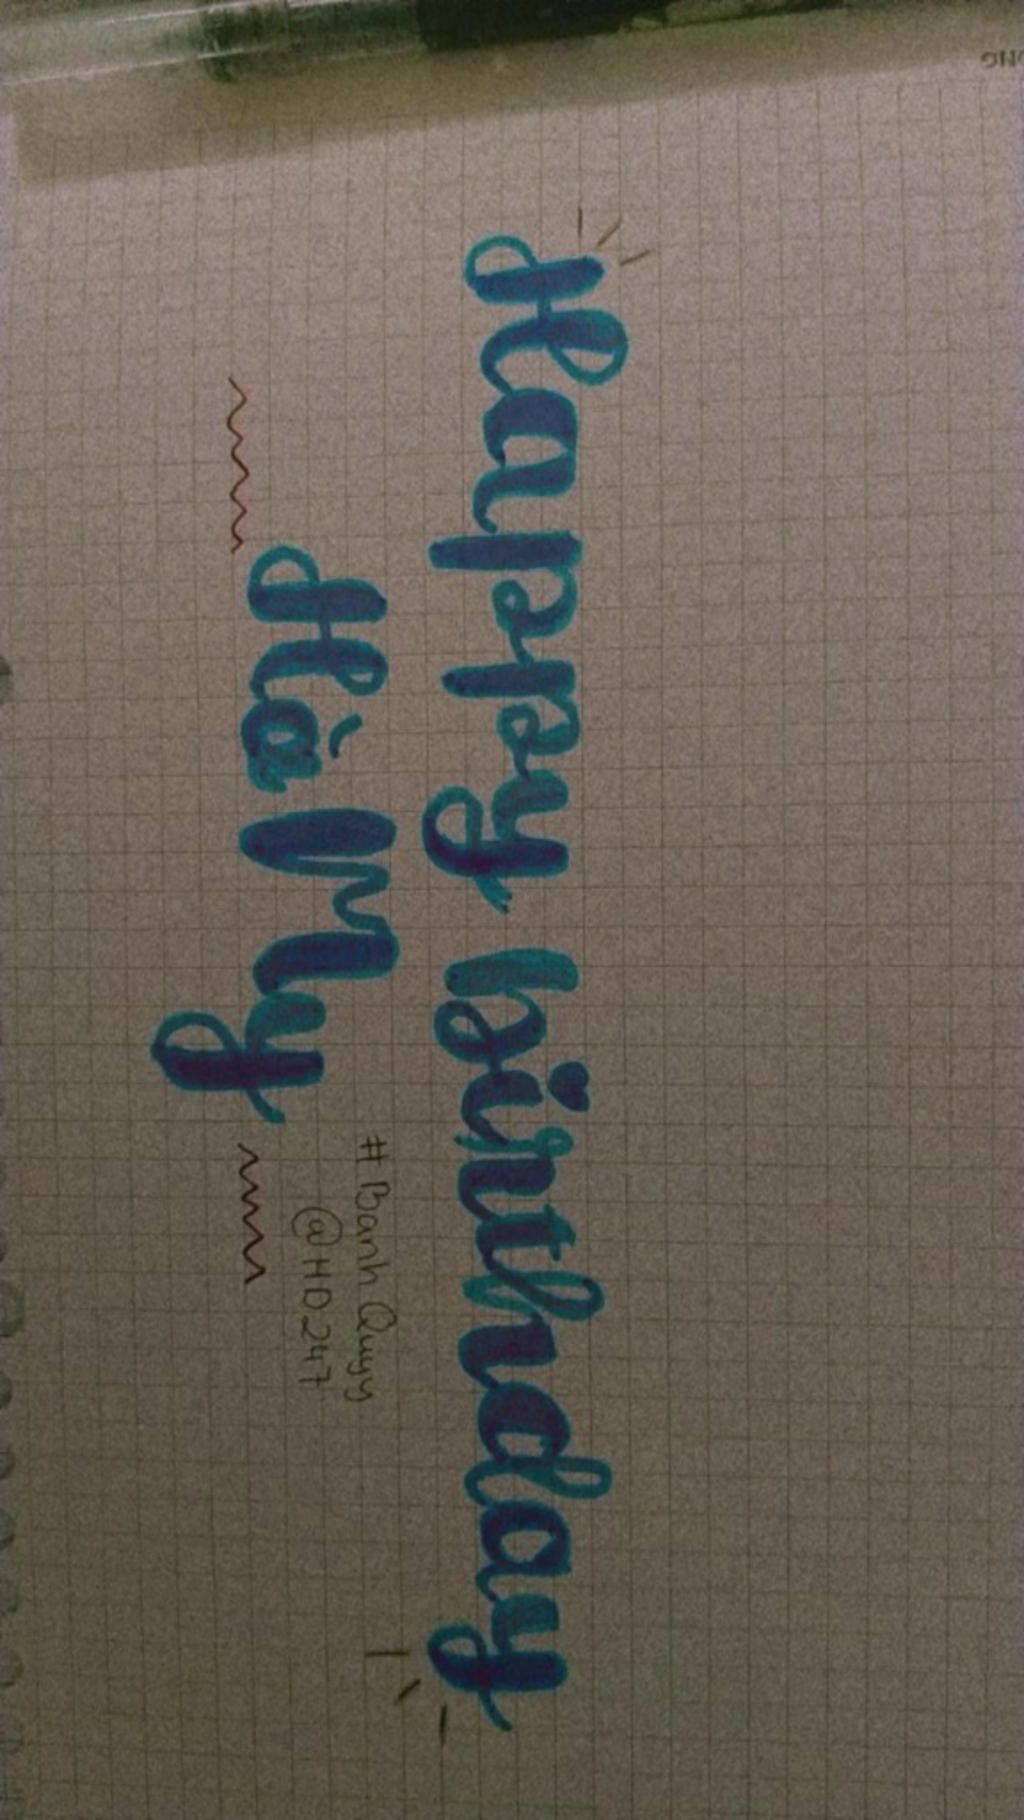 Happy birthday
Hà My
#Banh Quyy
@HD247